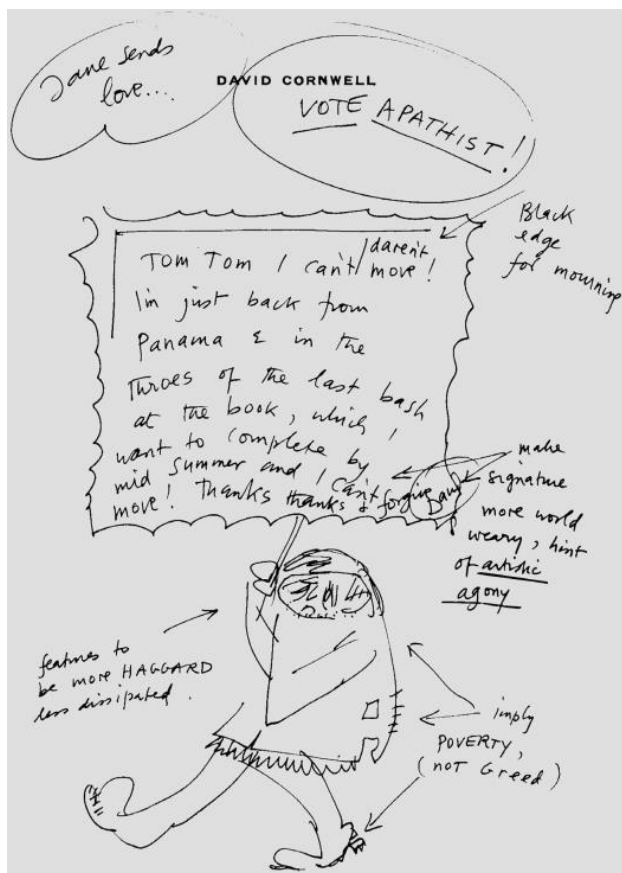 Jane sends
love...
DAVID CORNWELL
VOTE APATHIST!
Black
edge
for mourning
Tom Tom I can't / daren't
move!
I'm just back from
Panama & in the
throes of the last bash
at the book, which I
want to complete by
mid summer and I can't
move! Thanks thanks & forgive David
make
signature
more world
weary, hint
of artistic
agony
features to
be more HAGGARD
less dissipated.
imply
POVERTY,
(not Greed)